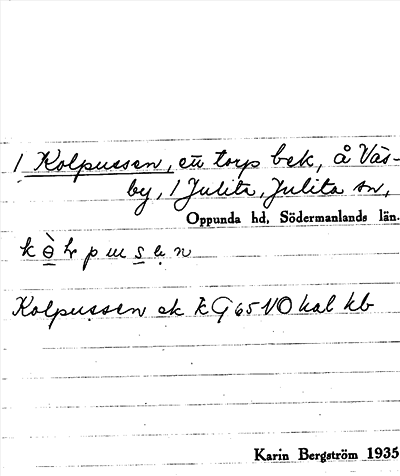 1 Kolpussen, en torp bek, å Väs-
by, 1 Julita, Julita sn,
Oppunda hd, Södermanlands län.
Kolpussen ek EG 65 NO kal kb
Karin Bergström 1935